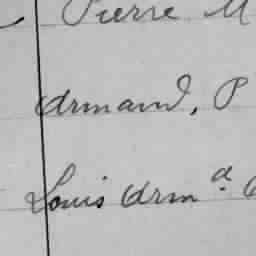 Pierre M
Armand, P
Louis Arm^d.